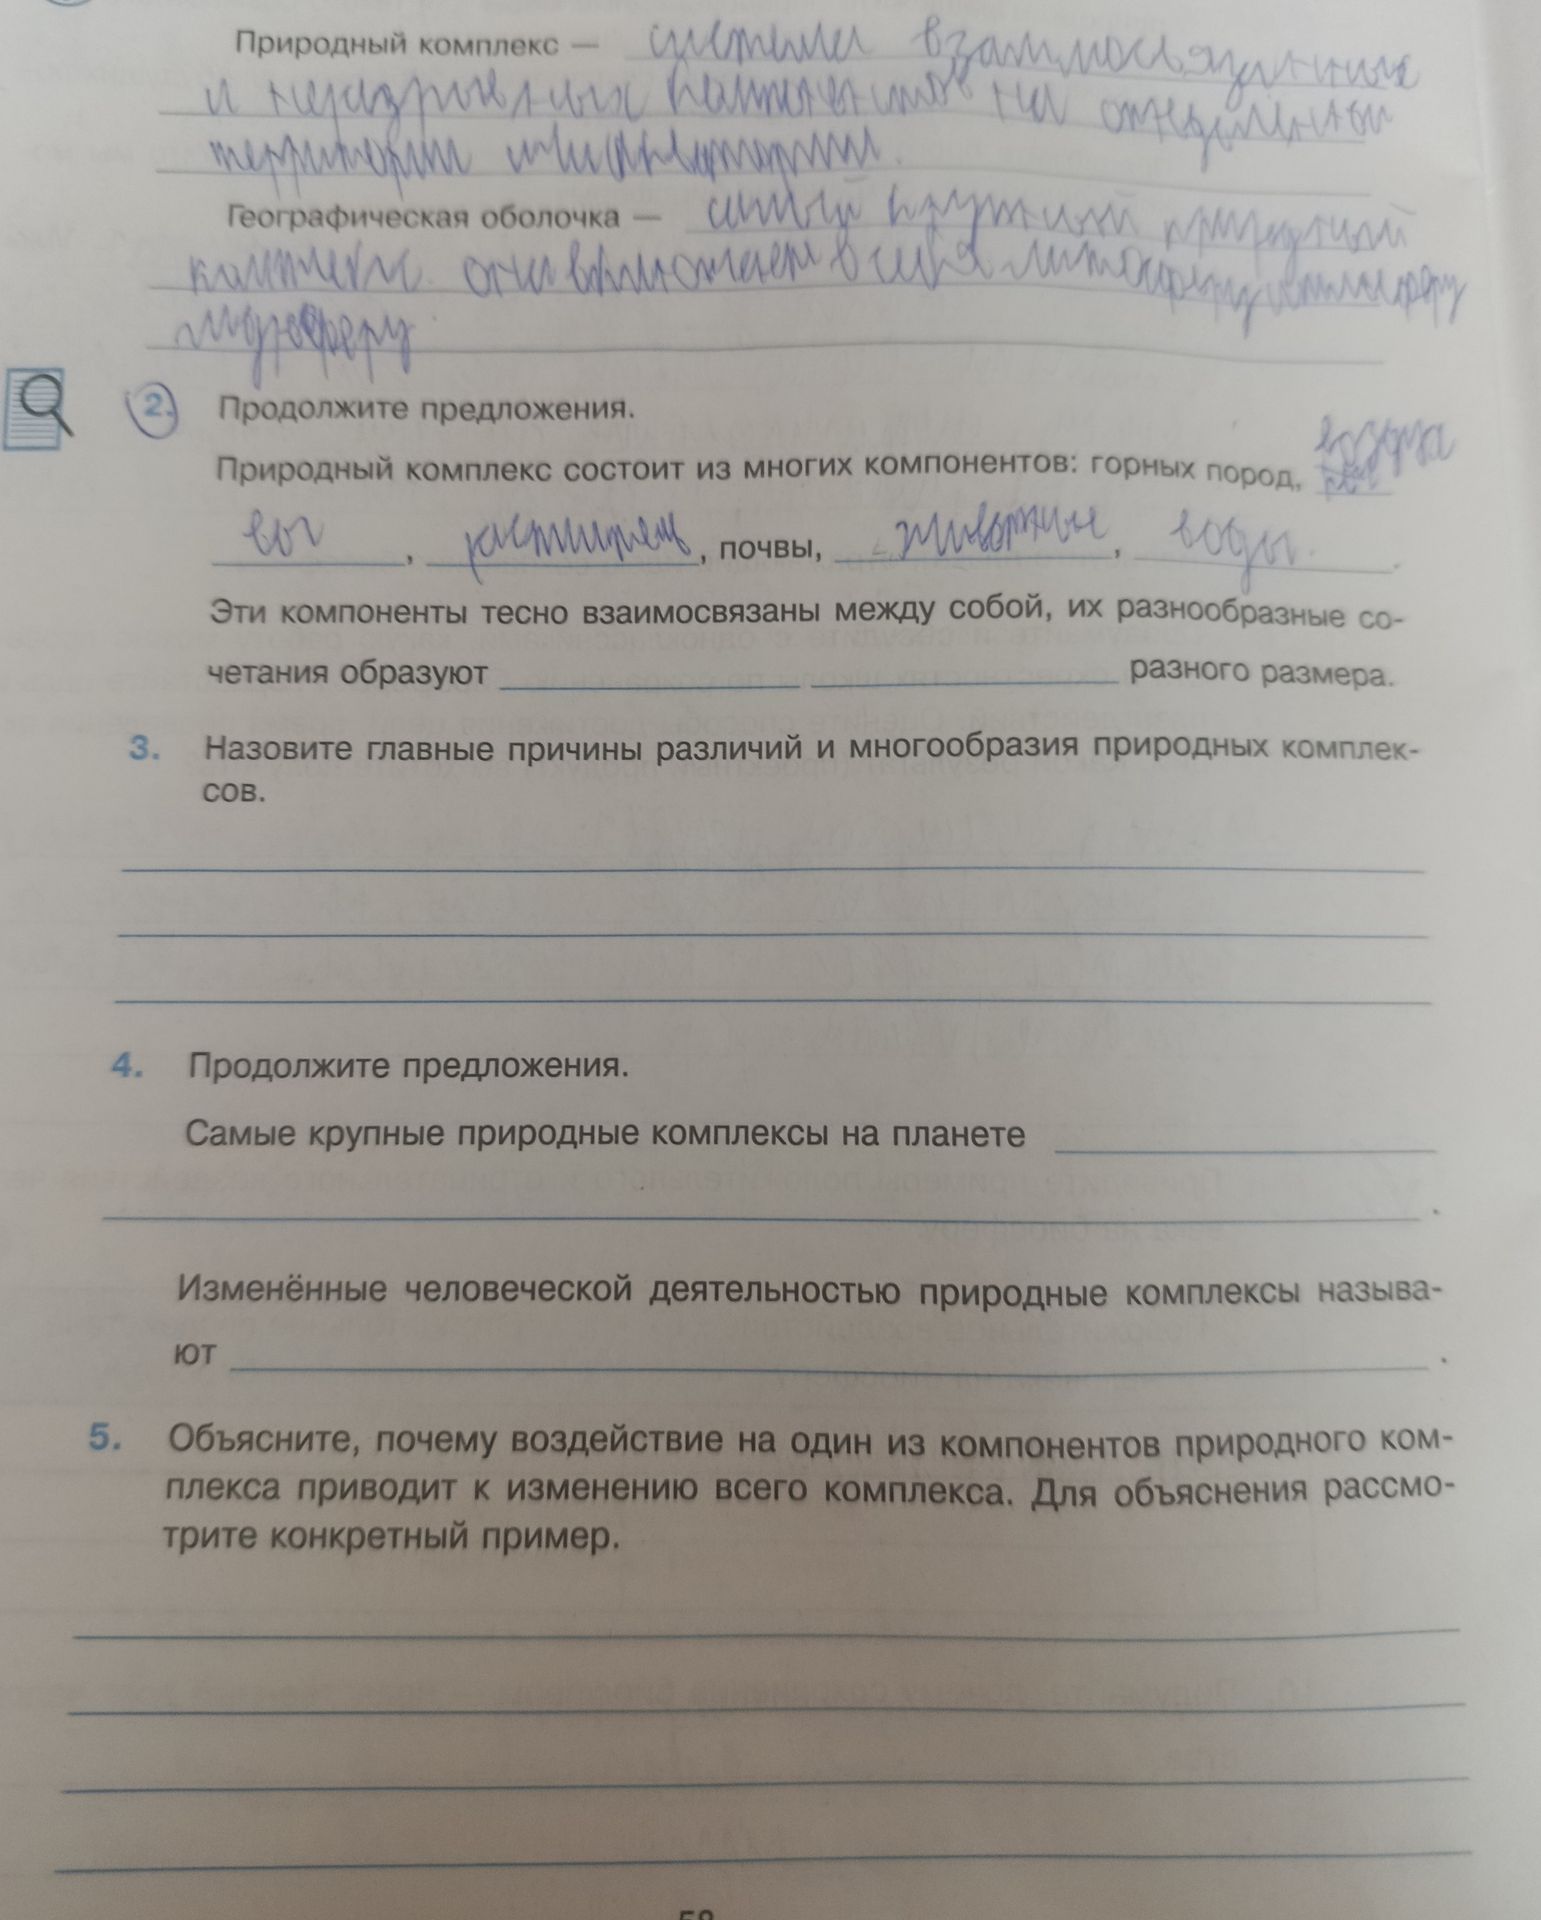 Природный комплекс — система взаимосвязанных
и неразрывных компонентов на отдельный
территории или акватории.
Географическая оболочка — самый крупный природный
комплекс. она включает в себя литосферу атмосферу
гидросферу
2. Продолжите предложения.
Природный комплекс состоит из многих компонентов: горных пород, воздуха
, раститель, почвы, животные, воды.
Эти компоненты тесно взаимосвязаны между собой, их разнообразные со-
четания образуют разного размера.
3. Назовите главные причины различий и многообразия природных комплек-
сов.
4. Продолжите предложения.
Самые крупные природные комплексы на планете
.
Изменённые человеческой деятельностью природные комплексы называ-
ют .
5. Объясните, почему воздействие на один из компонентов природного ком-
плекса приводит к изменению всего комплекса. Для объяснения рассмо-
трите конкретный пример.